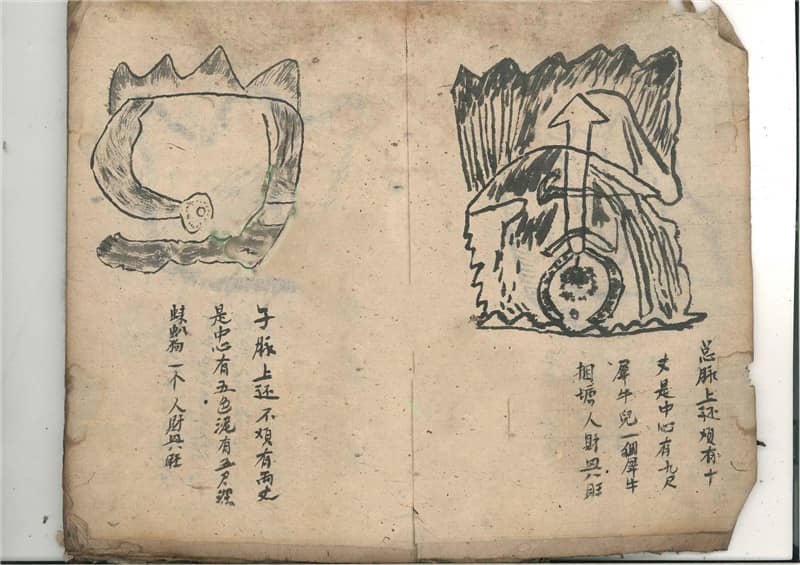 总脉上还烦有十
丈是中心有九尺
犀牛兒一個犀牛
塘人財興旺
子脉上还不烦有两丈
是中心有五色泥有五尺深
狗一个人財興旺